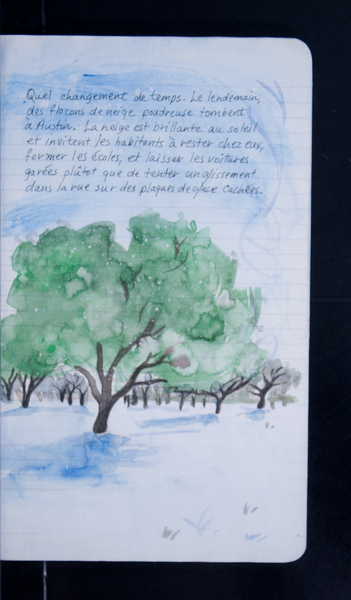 Quel changement de temps. Le lendemain,
des flocons de neige poudreuse tombent
à Austin. La neige est brillante au soleil
et invitent les habitants à rester chez eux,
fermer les écoles, et laisser les voitures
garées plûtot que de tenter un glissement
dans la rue sur des plaques de glace cachées.